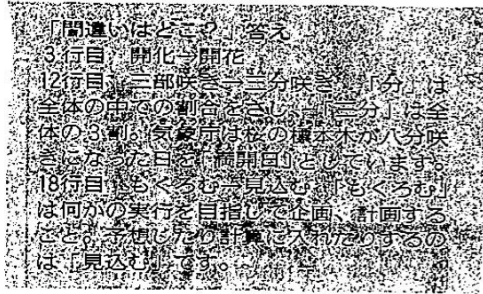 「間違いはどこ？」答え
3行目 開化→開花
12行目 三部咲き→三分咲き 「分」は
全体の中での割合をさし、「三分」は全
体の3割。気象庁は桜の標本木が八分咲
きになった日を「満開日」としています。
18行目 もくろむ→見込む 「もくろむ」
は何かの実行を目指して企画、計画する
こと。予想したり計算に入れたりするの
は「見込む」です。